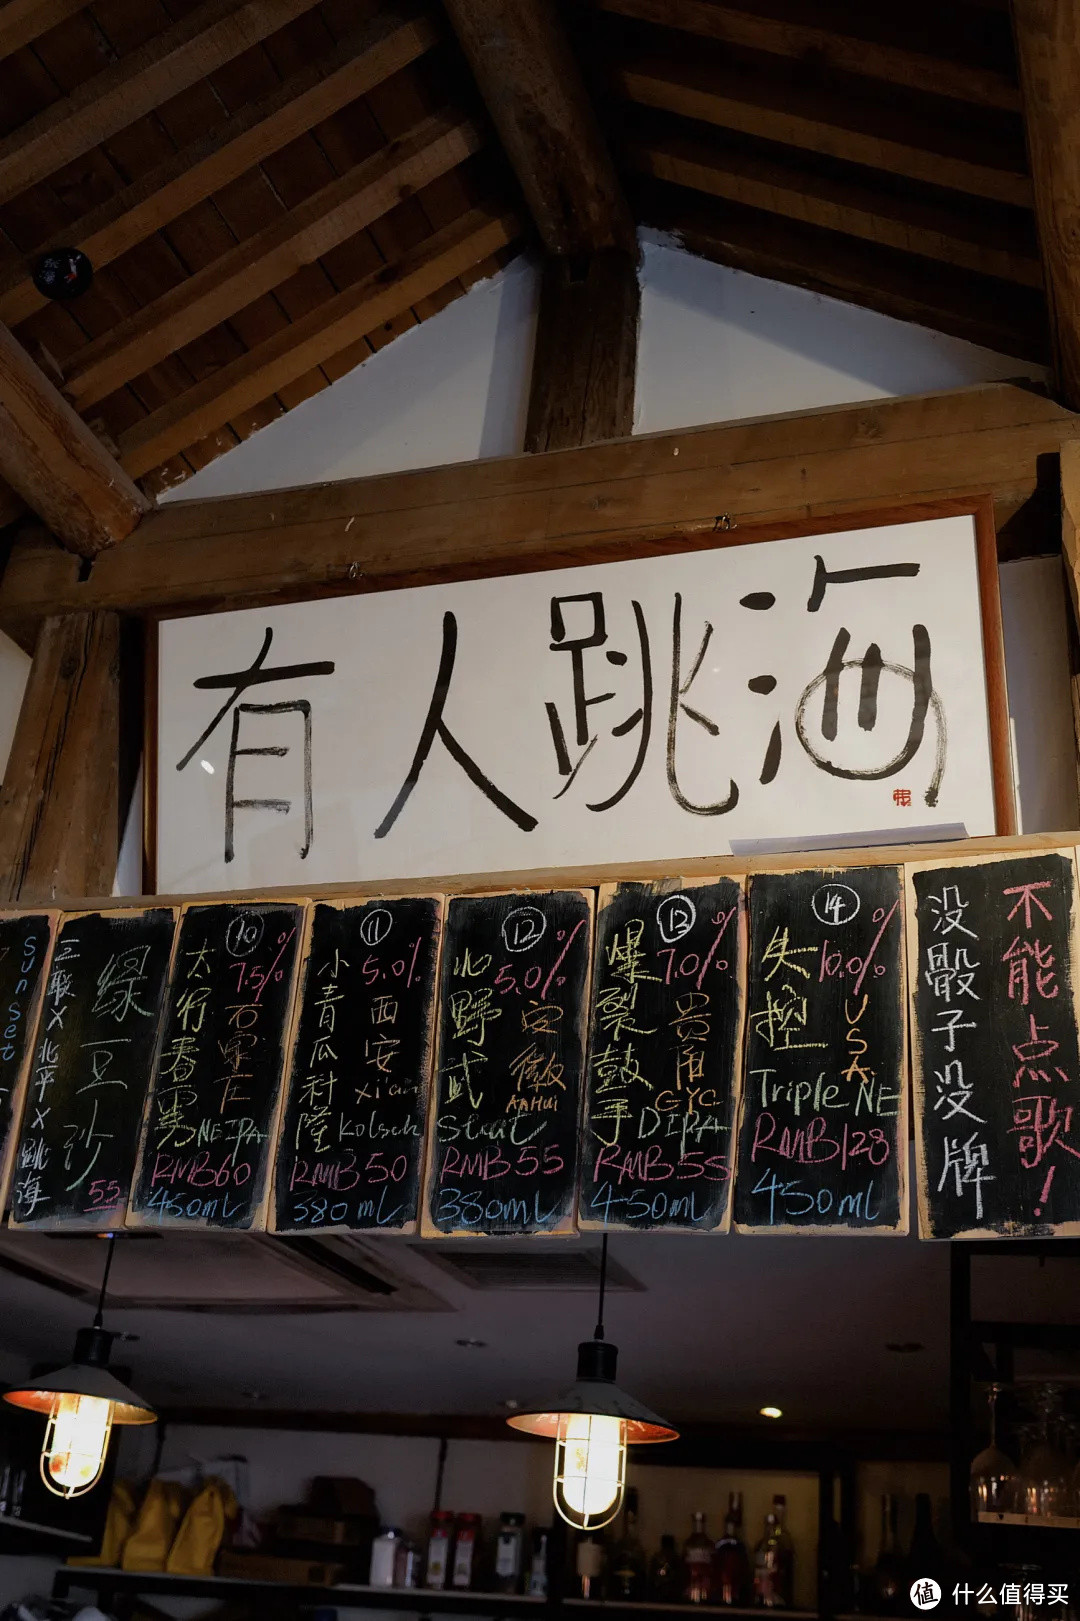 有人跳海
Sunset
三联X北平X跳海
绿豆沙
55
10
7.5%
太行春男
石家庄
NEIPA
RMB60
450mL
11
5.0%
小青瓜科隆
西安
Xi'an
Kolsch
RMB50
380mL
12
5.0%
北野武
安徽
AnHui
Stout
RMB55
380mL
13
7.0%
爆裂鼓手
贵阳
GYC
DIPA
RMB55
450mL
14
10.0%
失控
USA
Triple NE
RMB128
450mL
不能点歌！
没骰子没牌
值 什么值得买